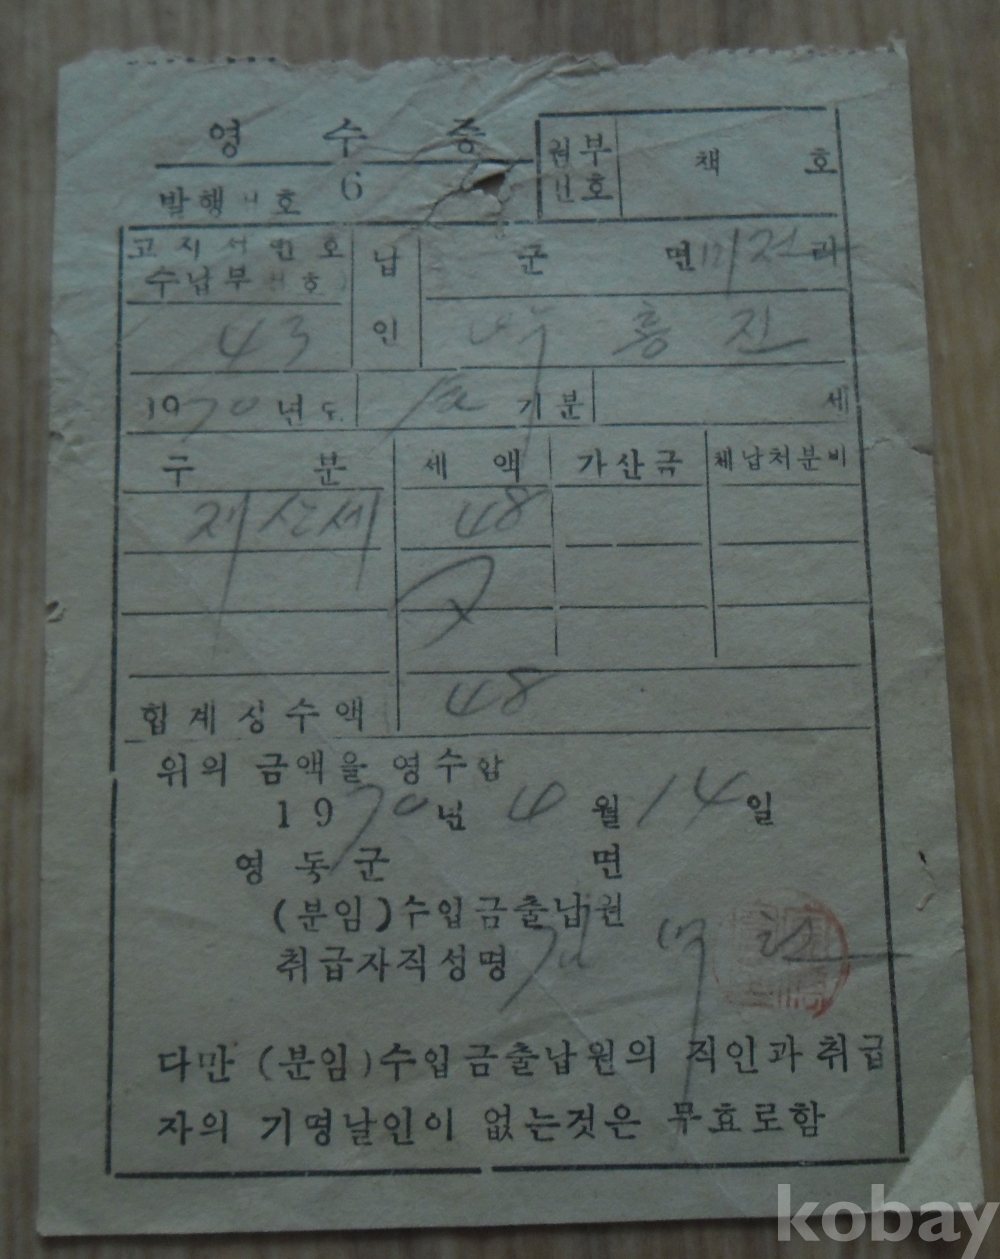 영 수 증
원부번호 책 호
발행번호 6
고지서번호
수납부번호
납 군 면 미전리
43
인 박 흥 진
1970년도 기분 세
구 분 세 액 가산금 체납처분비
재산세 48
합계징수액 48
위의 금액을 영수함
1970년 4월 14일
영동군 면
(분임)수입금출납원
취급자직성명
다만 (분임)수입금출납원의 직인과 취급
자의 기명날인이 없는것은 무효로함
kobay